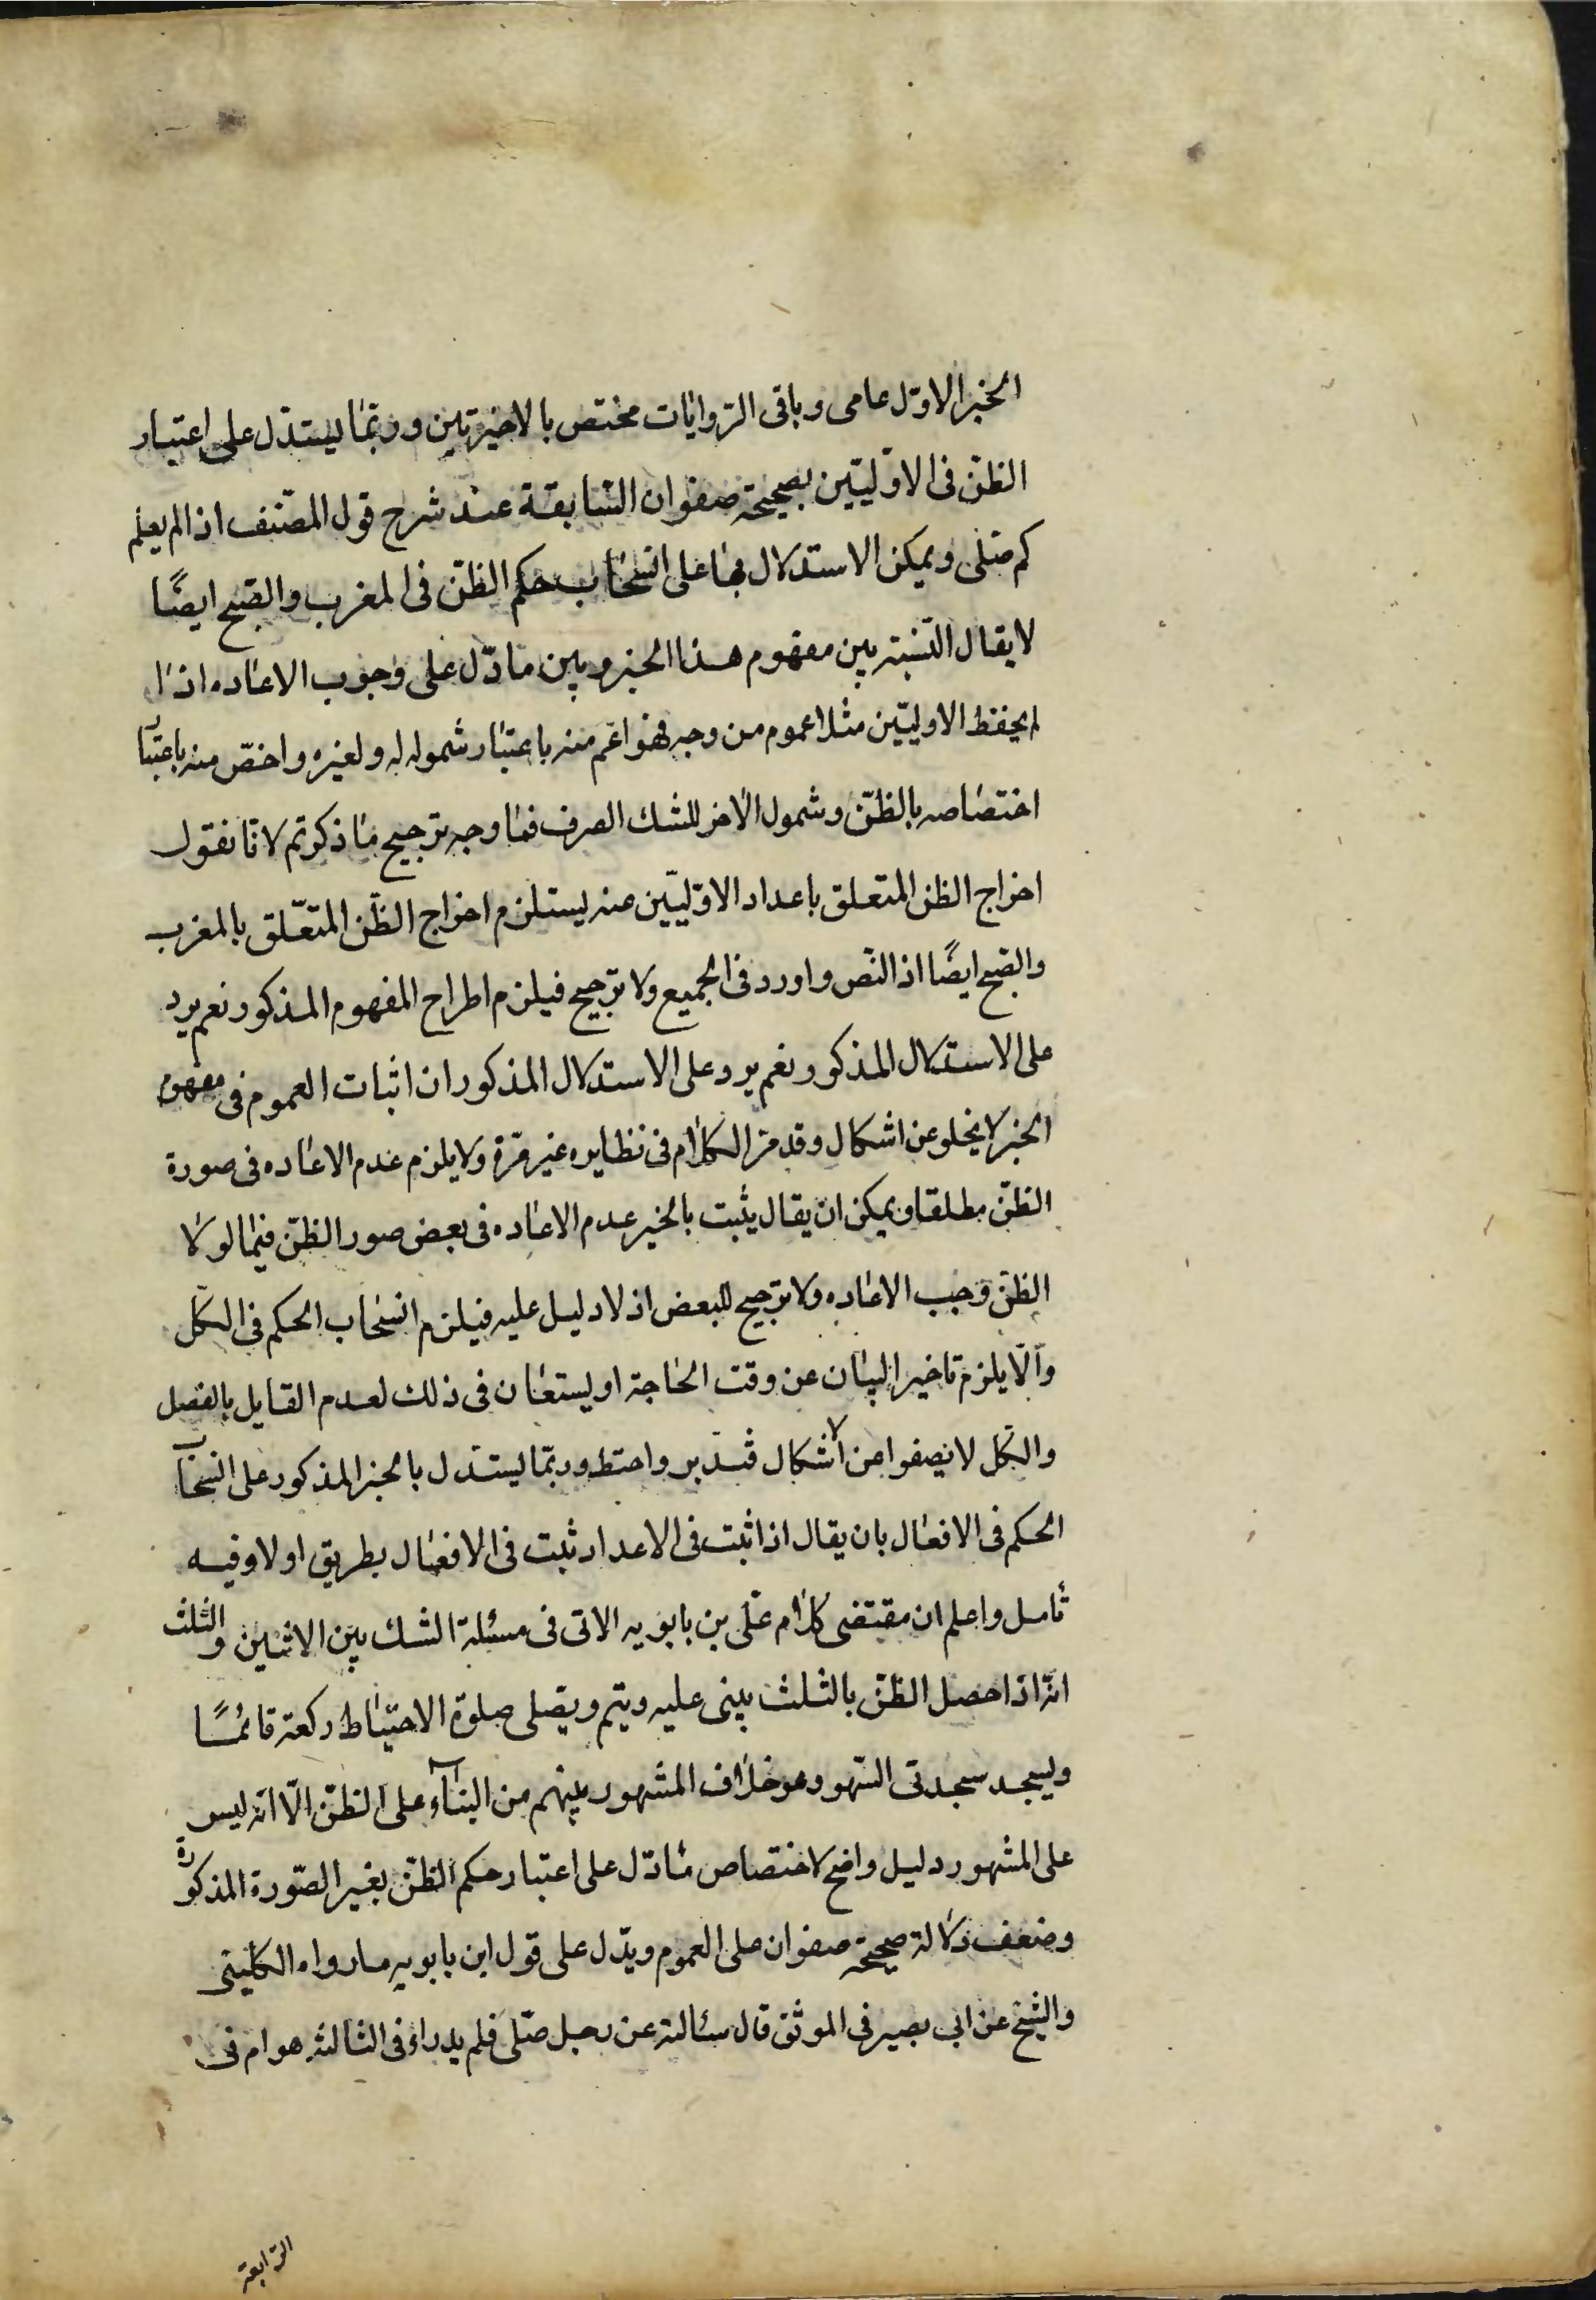 الخبر الاوّل عامى وباقى الرّوايات مختص بالاخيرتين وربّما يستدّل على اعتبار
الظنّ فى الاوّليّين بصحيحة صفوان السّابقة عند شرح قول المصّنف اذا لم يعلم
كم صّلى ويمكن الاستدلال بها على انسحاب حكم الظنّ فى المغرب والصّبح ايضًا
لا يقال النّسبة بين مفهوم هذا الخبر وبين ما دّل على وجوب الاعاده اذا
لم يحفظ الاوليّين مثلا عموم من وجه فهو اعّم منه باعتبار شموله له ولغيره واخصّ منه باعتبا
اختصاصه بالظنّ وشمول الاخر للشك الصرف فما وجه ترجيح ما ذكرتم لانّا نقول
اخراج الظن المتعلق باعداد الاوّليّين عنه يستلزم اخراج الظّن المتعّلق بالمغرب
والصّبح ايضًا اذ النّص واورد فى الجميع ولا ترجيح فيلزم اطراح المفهوم المذكور نعم يرد
على الاستدلال المذكور نعم يرد على الاستدلال المذكور ان اثبات العموم فى مفهوم
الخبر لا يخلو عن اشكال وقد مرّ الكلام فى نظايره غير مرّة ولا يلزم عدم الاعاده فى صورة
الظنّ مطلقا ويمكن ان يقال يثبت بالخبر عدم الاعاده فى بعض صور الظنّ فيما لولا
الظنّ وجب الاعاده ولا ترجيح للبعض اذ لا دليل عليه فيلزم انسحاب الحكم فى الكّل
والّا يلزم تاخير البيان عن وقت الحاجة او يستعان فى ذلك لعدم القايل بالفصل
والكّل لا يصفوا عن الاشكال فتدّبر واحتط وربّما يستدّل بالخبر المذكور على انسحاب
الحكم فى الافعال بان يقال اذا ثبت فى الاعداد ثبت فى الافعال بطريق اولا وفيه
تامل واعلم ان مقتضى كلام علّى بن بابويه الاتى فى مسئلة الشك بين الاثنين والثلث
انّه اذا حصل الظنّ بالثلث يبنى عليه ويتم ويصّلى صلوة الاحتياط ركعة قائمًا
ويسجد سجدتى السّهو وهو خلاف المشهور بينهم من البناء على الظنّ الّا انّه ليس
على المشهور دليل واضح لاختصاص ما دّل على اعتبار حكم الظنّ بغير الصّورة المذكورة
وضعف دلالة صحيحة صفوان على العموم ويدّل على قول ابن بابويه ما رواه الكلينى
والشيخ عن ابى بصير فى الموثق قال سئالته عن رجل صّلى فلم يدر اءفى الثالثه هو ام فى
الرّابعة